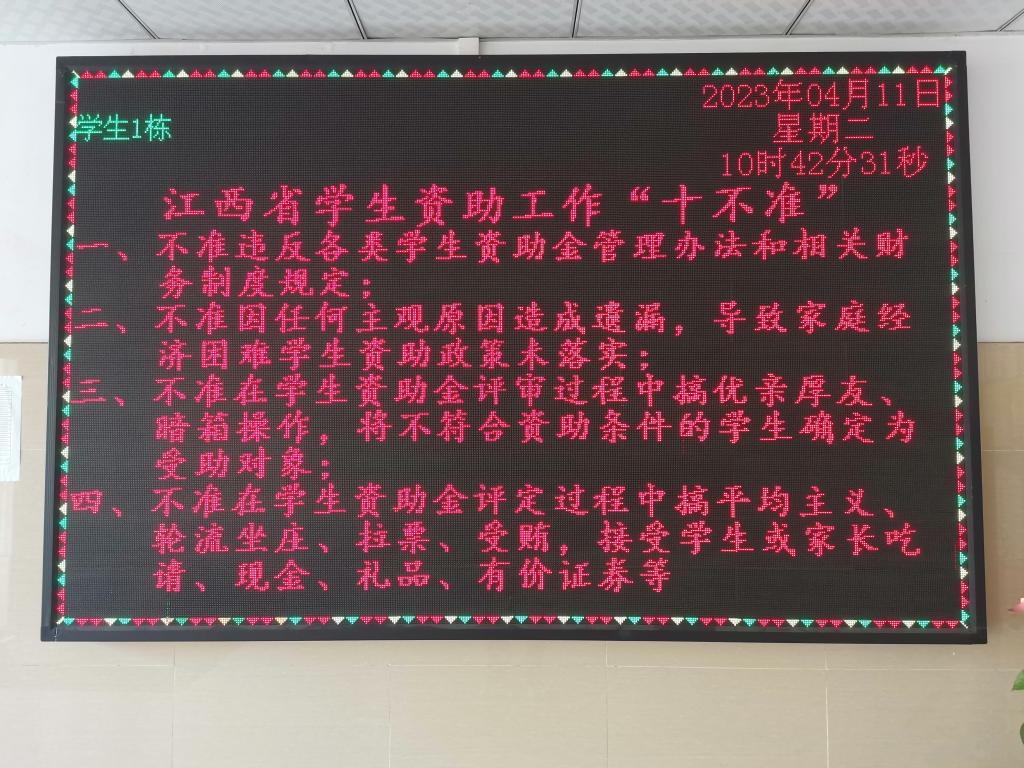 2023年04月11日
学生1栋
星期二
10时42分31秒
江西省学生资助工作“十不准”
一、不准违反各类学生资助金管理办法和相关财
务制度规定；
二、不准因任何主观原因造成遗漏，导致家庭经
济困难学生资助政策未落实；
三、不准在学生资助金评审过程中搞优亲厚友、
暗箱操作，将不符合资助条件的学生确定为
受助对象；
四、不准在学生资助金评定过程中搞平均主义、
轮流坐庄、拉票、受贿，接受学生或家长吃
请、现金、礼品、有价证券等